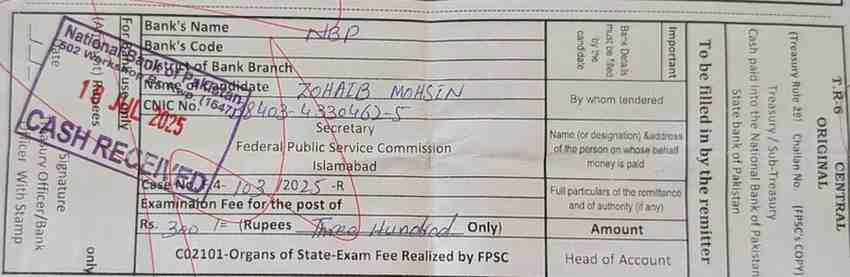 CENTRAL
T.R-6
ORIGINAL
(FPSC's COPY)
(Treasury Rule 29) Challan No.
Treasury / Sub-Treasury
Cash paid into the National Bank of Pakistan
State bank of Pakistan
To be filled in by the remitter
Important
Bank Details must be filled by the candidate
Bank's Name NBP
Bank's Code
District of Bank Branch
By whom tendered
Name of Candidate ZOHAIB MOHSIN
CNIC No. 38403-4330462-5
Name (or designation) &address
of the person on whose behalf
money is paid
Secretary
Federal Public Service Commission
Islamabad
Full particulars of the remittance
and of authority (if any)
Case No. F.4- 103 /2025 -R
Examination Fee for the post of
Amount
Rs. 300 /= (Rupees Three Hundred Only)
Head of Account
C02101-Organs of State-Exam Fee Realized by FPSC
For Bank use only
Rupees
only
Date
Signature
Treasury Officer/Bank
Officer With Stamp
National Bank of Pakistan
502 Workshop
(1647)
18 JUL 2025
CASH RECEIVED